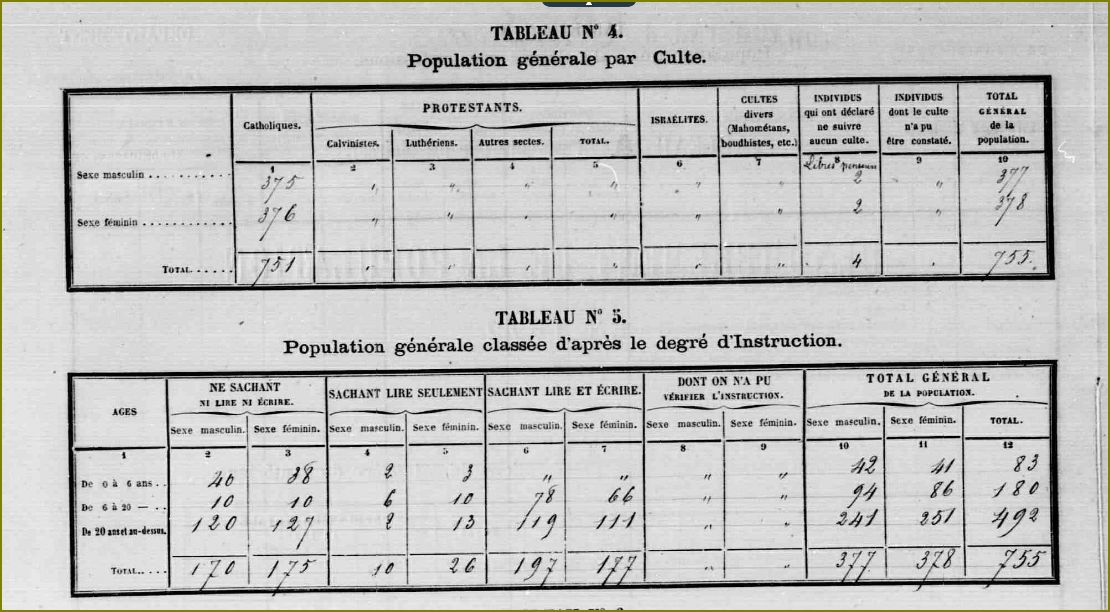 TABLEAU N° 4.
Population générale par Culte.
Catholiques. PROTESTANTS. ISRAÉLITES. CULTES divers (Mahométans, boudhistes, etc.) INDIVIDUS qui ont déclaré ne suivre aucun culte. INDIVIDUS dont le culte n'a pu être constaté. TOTAL GÉNÉRAL de la population.
Calvinistes. Luthériens. Autres sectes. TOTAL.
1 2 3 4 5 6 7 8 9 10
Libres penseurs
Sexe masculin . . . . . . . . . . . 375 " " " " " " 2 " 377
Sexe féminin . . . . . . . . . . . . 376 " " " " " " 2 " 378
TOTAL. . . . . 751 " " " " " " 4 " 755.
TABLEAU N° 5.
Population générale classée d'après le degré d'Instruction.
AGES NE SACHANT NI LIRE NI ÉCRIRE. SACHANT LIRE SEULEMENT SACHANT LIRE ET ÉCRIRE. DONT ON N'A PU VÉRIFIER L'INSTRUCTION. TOTAL GÉNÉRAL DE LA POPULATION.
Sexe masculin. Sexe féminin. Sexe masculin. Sexe féminin. Sexe masculin. Sexe féminin. Sexe masculin. Sexe féminin. Sexe masculin. Sexe féminin. TOTAL.
1 2 3 4 5 6 7 8 9 10 11 12
De 0 à 6 ans . . 40 38 2 3 " " " " 42 41 83
De 6 à 20 — . . 10 10 6 10 78 66 " " 94 86 180
De 20 ans et au-dessus. 120 127 2 13 119 111 " " 241 251 492
TOTAL. . . . 170 175 10 26 197 177 " " 377 378 755